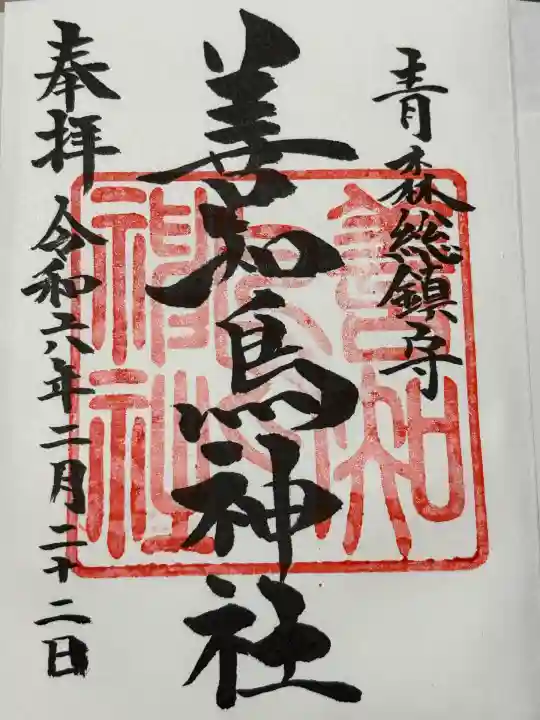 青森総鎮守
善知鳥神社
奉拝 令和六年二月二十二日
善知
鳥
神社